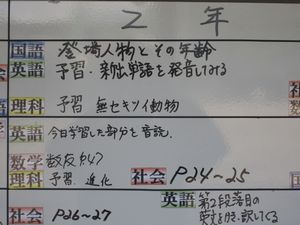 2 年
国語 登場人物とその年齢
英語 予習・新出単語を発音してみる
理科 予習 無セキツイ動物
英語 今日学習した部分を音読.
数学
理科 予習・進化
社会 P24~25
英語 第2段落目の
英文を書き・訳してくる
社会 P26~27